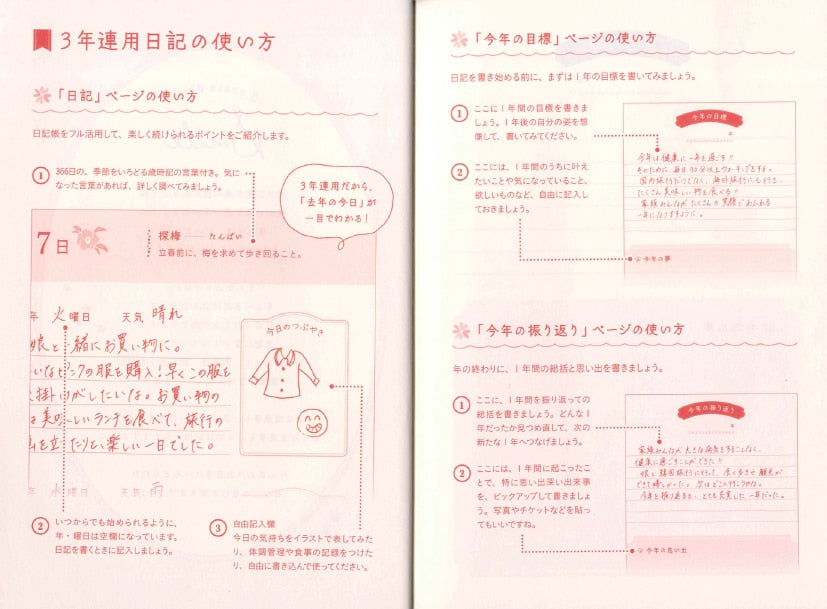 3年連用日記の使い方
「日記」ページの使い方
日記帳をフル活用して、楽しく続けられるポイントをご紹介します。
① 366日の、季節をいろどる歳時記の言葉付き。気に
なった言葉があれば、詳しく調べてみましょう。
3年連用だから、
「去年の今日」が
一目でわかる!
7日
探梅 ── たんばい
立春前に、梅を求めて歩き回ること。
年 火曜日 天気 晴れ
娘と一緒にお買い物に。
いなピンクの服を購入!早くこの服を
掛けがしたいな。お買い物の
は美味しいランチを食べて、旅行の
を立てたりと、楽しい一日でした。
年 水曜日 天気 雨
今日のつぶやき
② いつからでも始められるように、
年・曜日は空欄になっています。
日記を書くときに記入しましょう。
③ 自由記入欄
今日の気持ちをイラストで表してみた
り、体調管理や食事の記録をつけた
り、自由に書き込んで使ってください。
「今年の目標」ページの使い方
日記を書き始める前に、まずは1年の目標を書いてみましょう。
① ここに1年間の目標を書きま
しょう。1年後の自分の姿を想
像して、書いてみてください。
② ここには、1年間のうちに叶え
たいことや気になっていること、
欲しいものなど、自由に記入し
ておきましょう。
今年の目標
今年は健康に一年を過ごす!!
そのために、毎日30分以上ウォーキングをする。
国内旅行だけでなく、海外旅行にも行き、
たくさん美味しい物を食べる!!
家族みんながたくさんの笑顔であふれる
一年になりますように。
今年の夢
「今年の振り返り」ページの使い方
年の終わりに、1年間の総括と思い出を書きましょう。
① ここに、1年間を振り返っての
総括を書きましょう。どんな1
年だったか見つめ直して、次の
新たな1年へつなげましょう。
② ここには、1年間に起こったこと
で、特に思い出深い出来事
を、ピックアップして書きましょ
う。写真やチケットなどを貼っ
てもいいですね。
今年の振り返り
家族みんなが大きな病気をすることなく、
健康に過ごすことができた!!
娘と韓国旅行に行って、食べ歩きや観光が
できて嬉しかった。次はどこに行こうかな。
今年を振り返ると、とても充実した一年だった。
今年の思い出